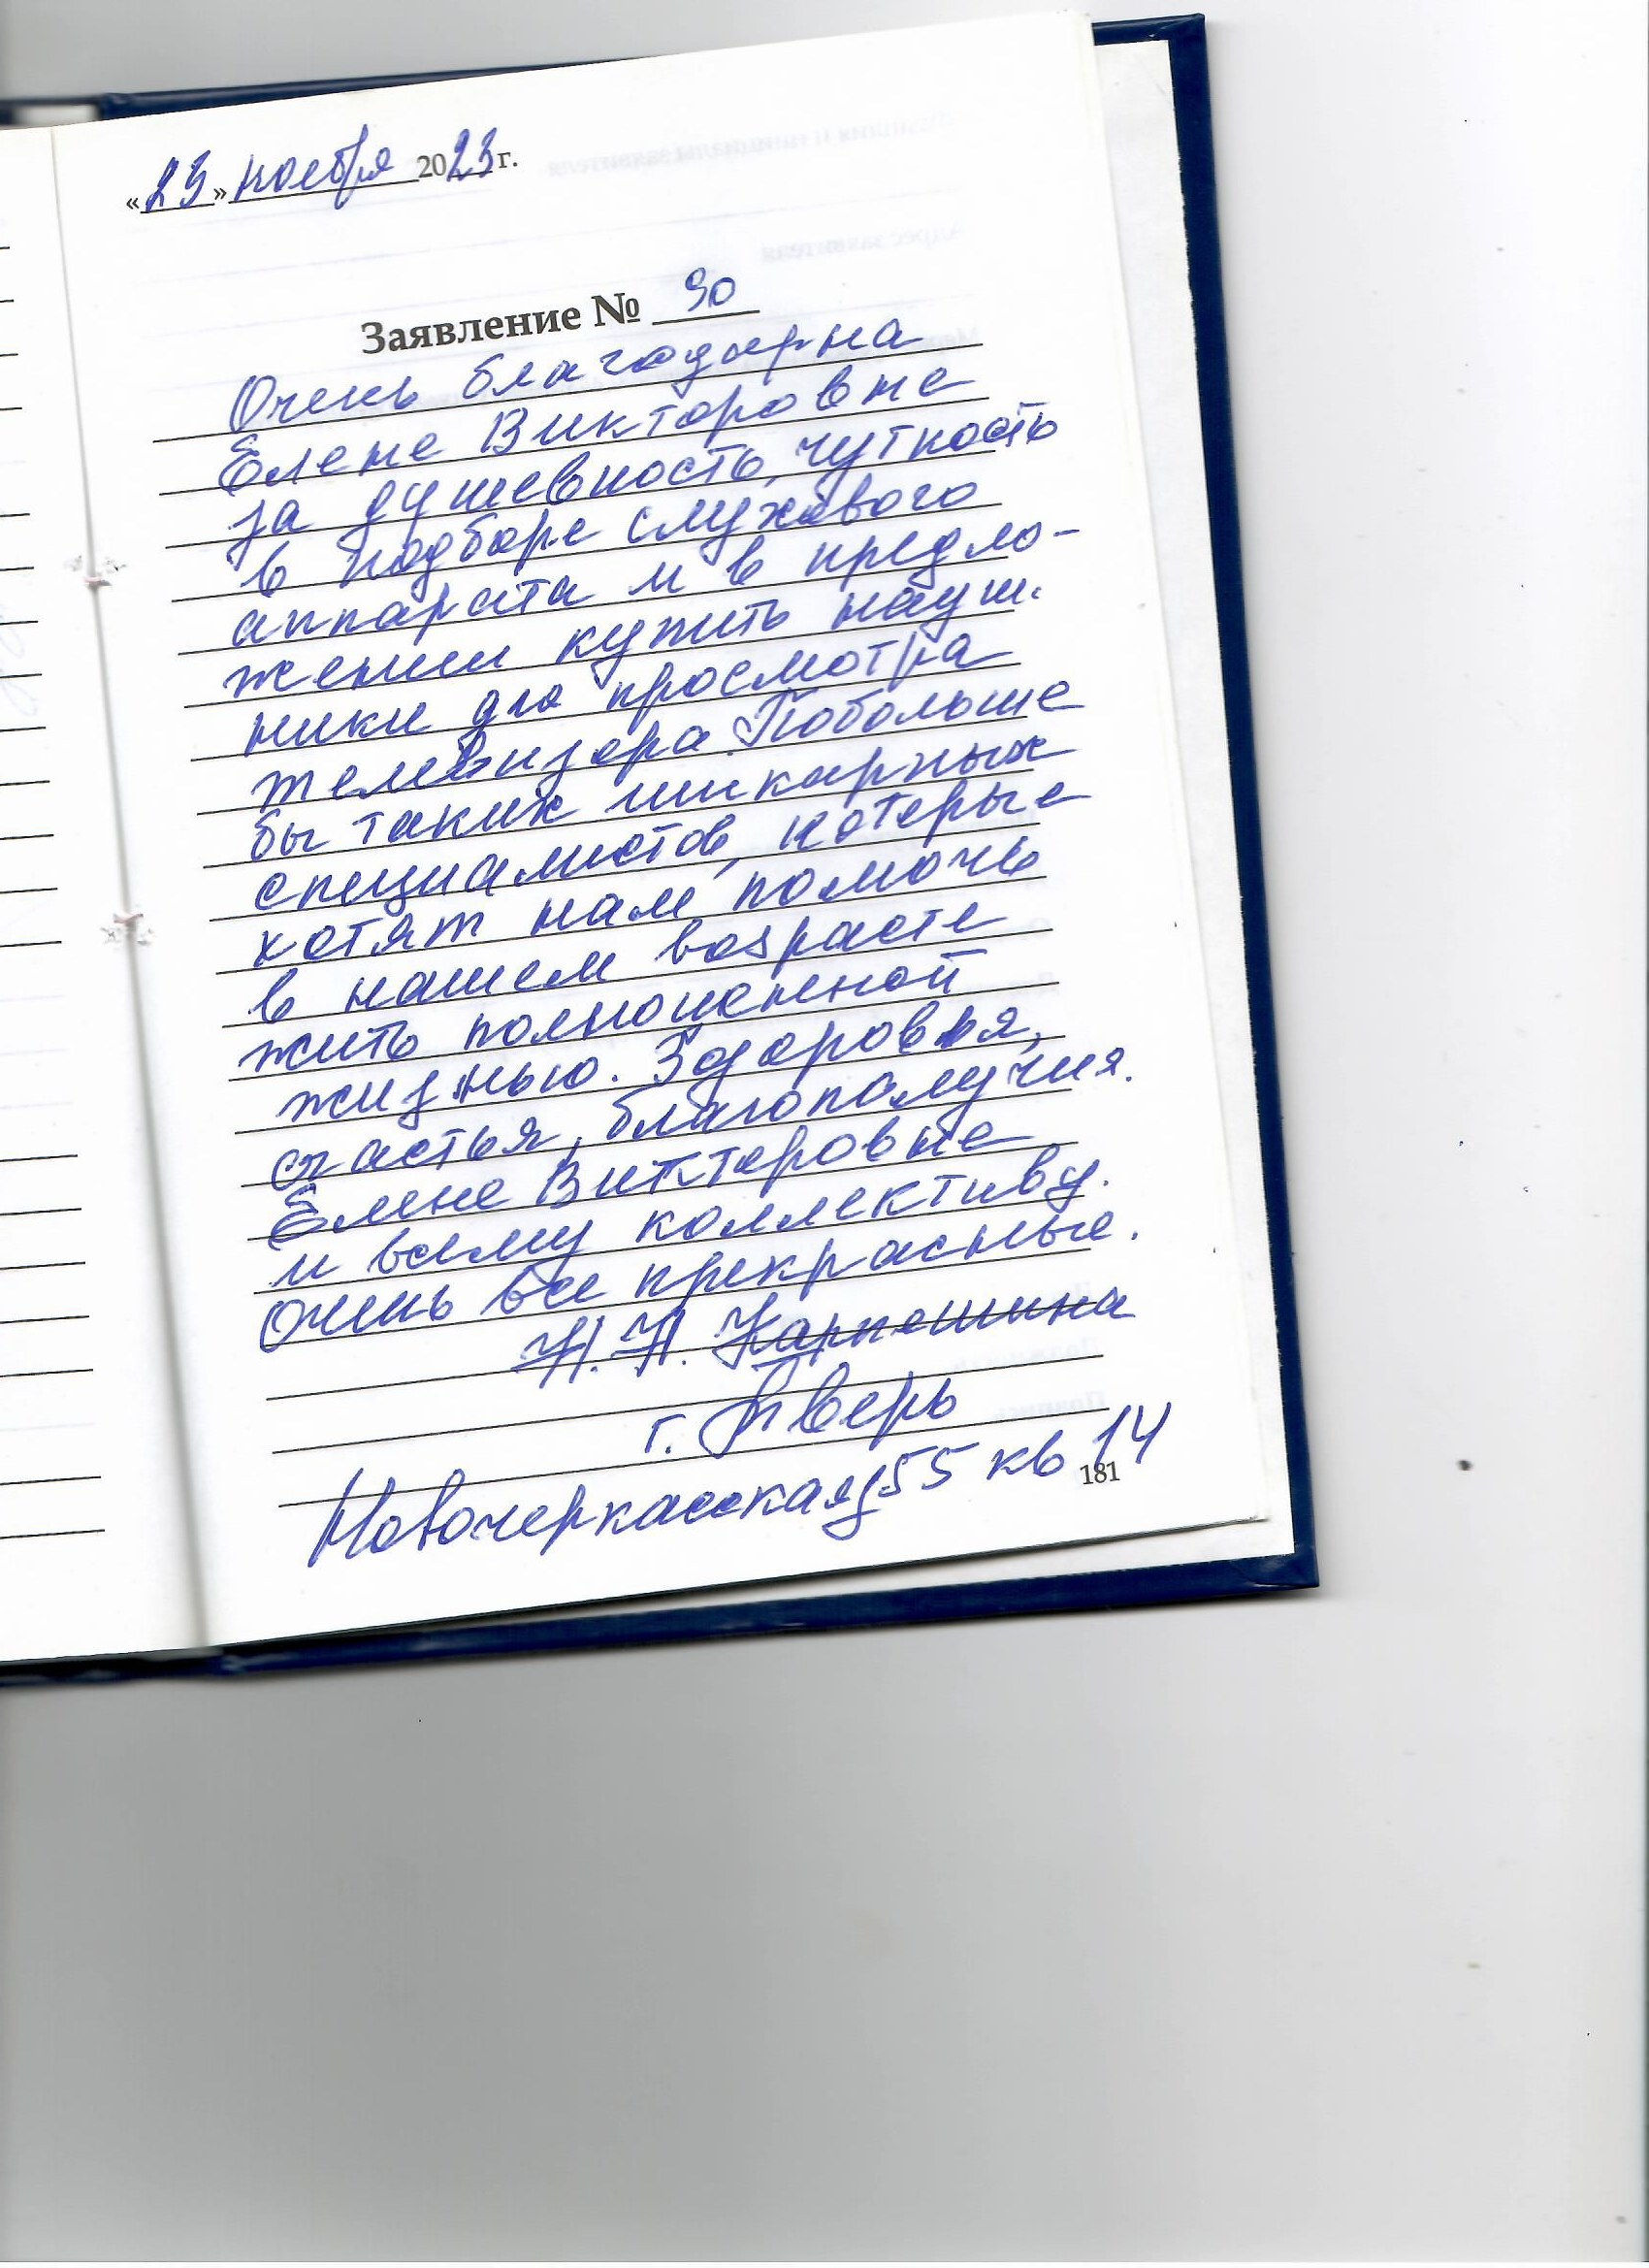 «23» ноября 2023 г.
Заявление № 90
Очень благодарна
Елене Викторовне
за душевность, чуткость
в подборе слухового
аппарата и в предло-
жении купить науш-
ники для просмотра
телевизора. Побольше
бы таких шикарных
специалистов, которые
хотят нам помочь
в нашем возрасте
жить полноценной
жизнью. Здоровья,
счастья, благополучия.
Елене Викторовне
и всему коллективу.
Очень все прекрасные.
Н. Н. Карпешина
г. Тверь
Новочеркасская д 55 кв 14
181